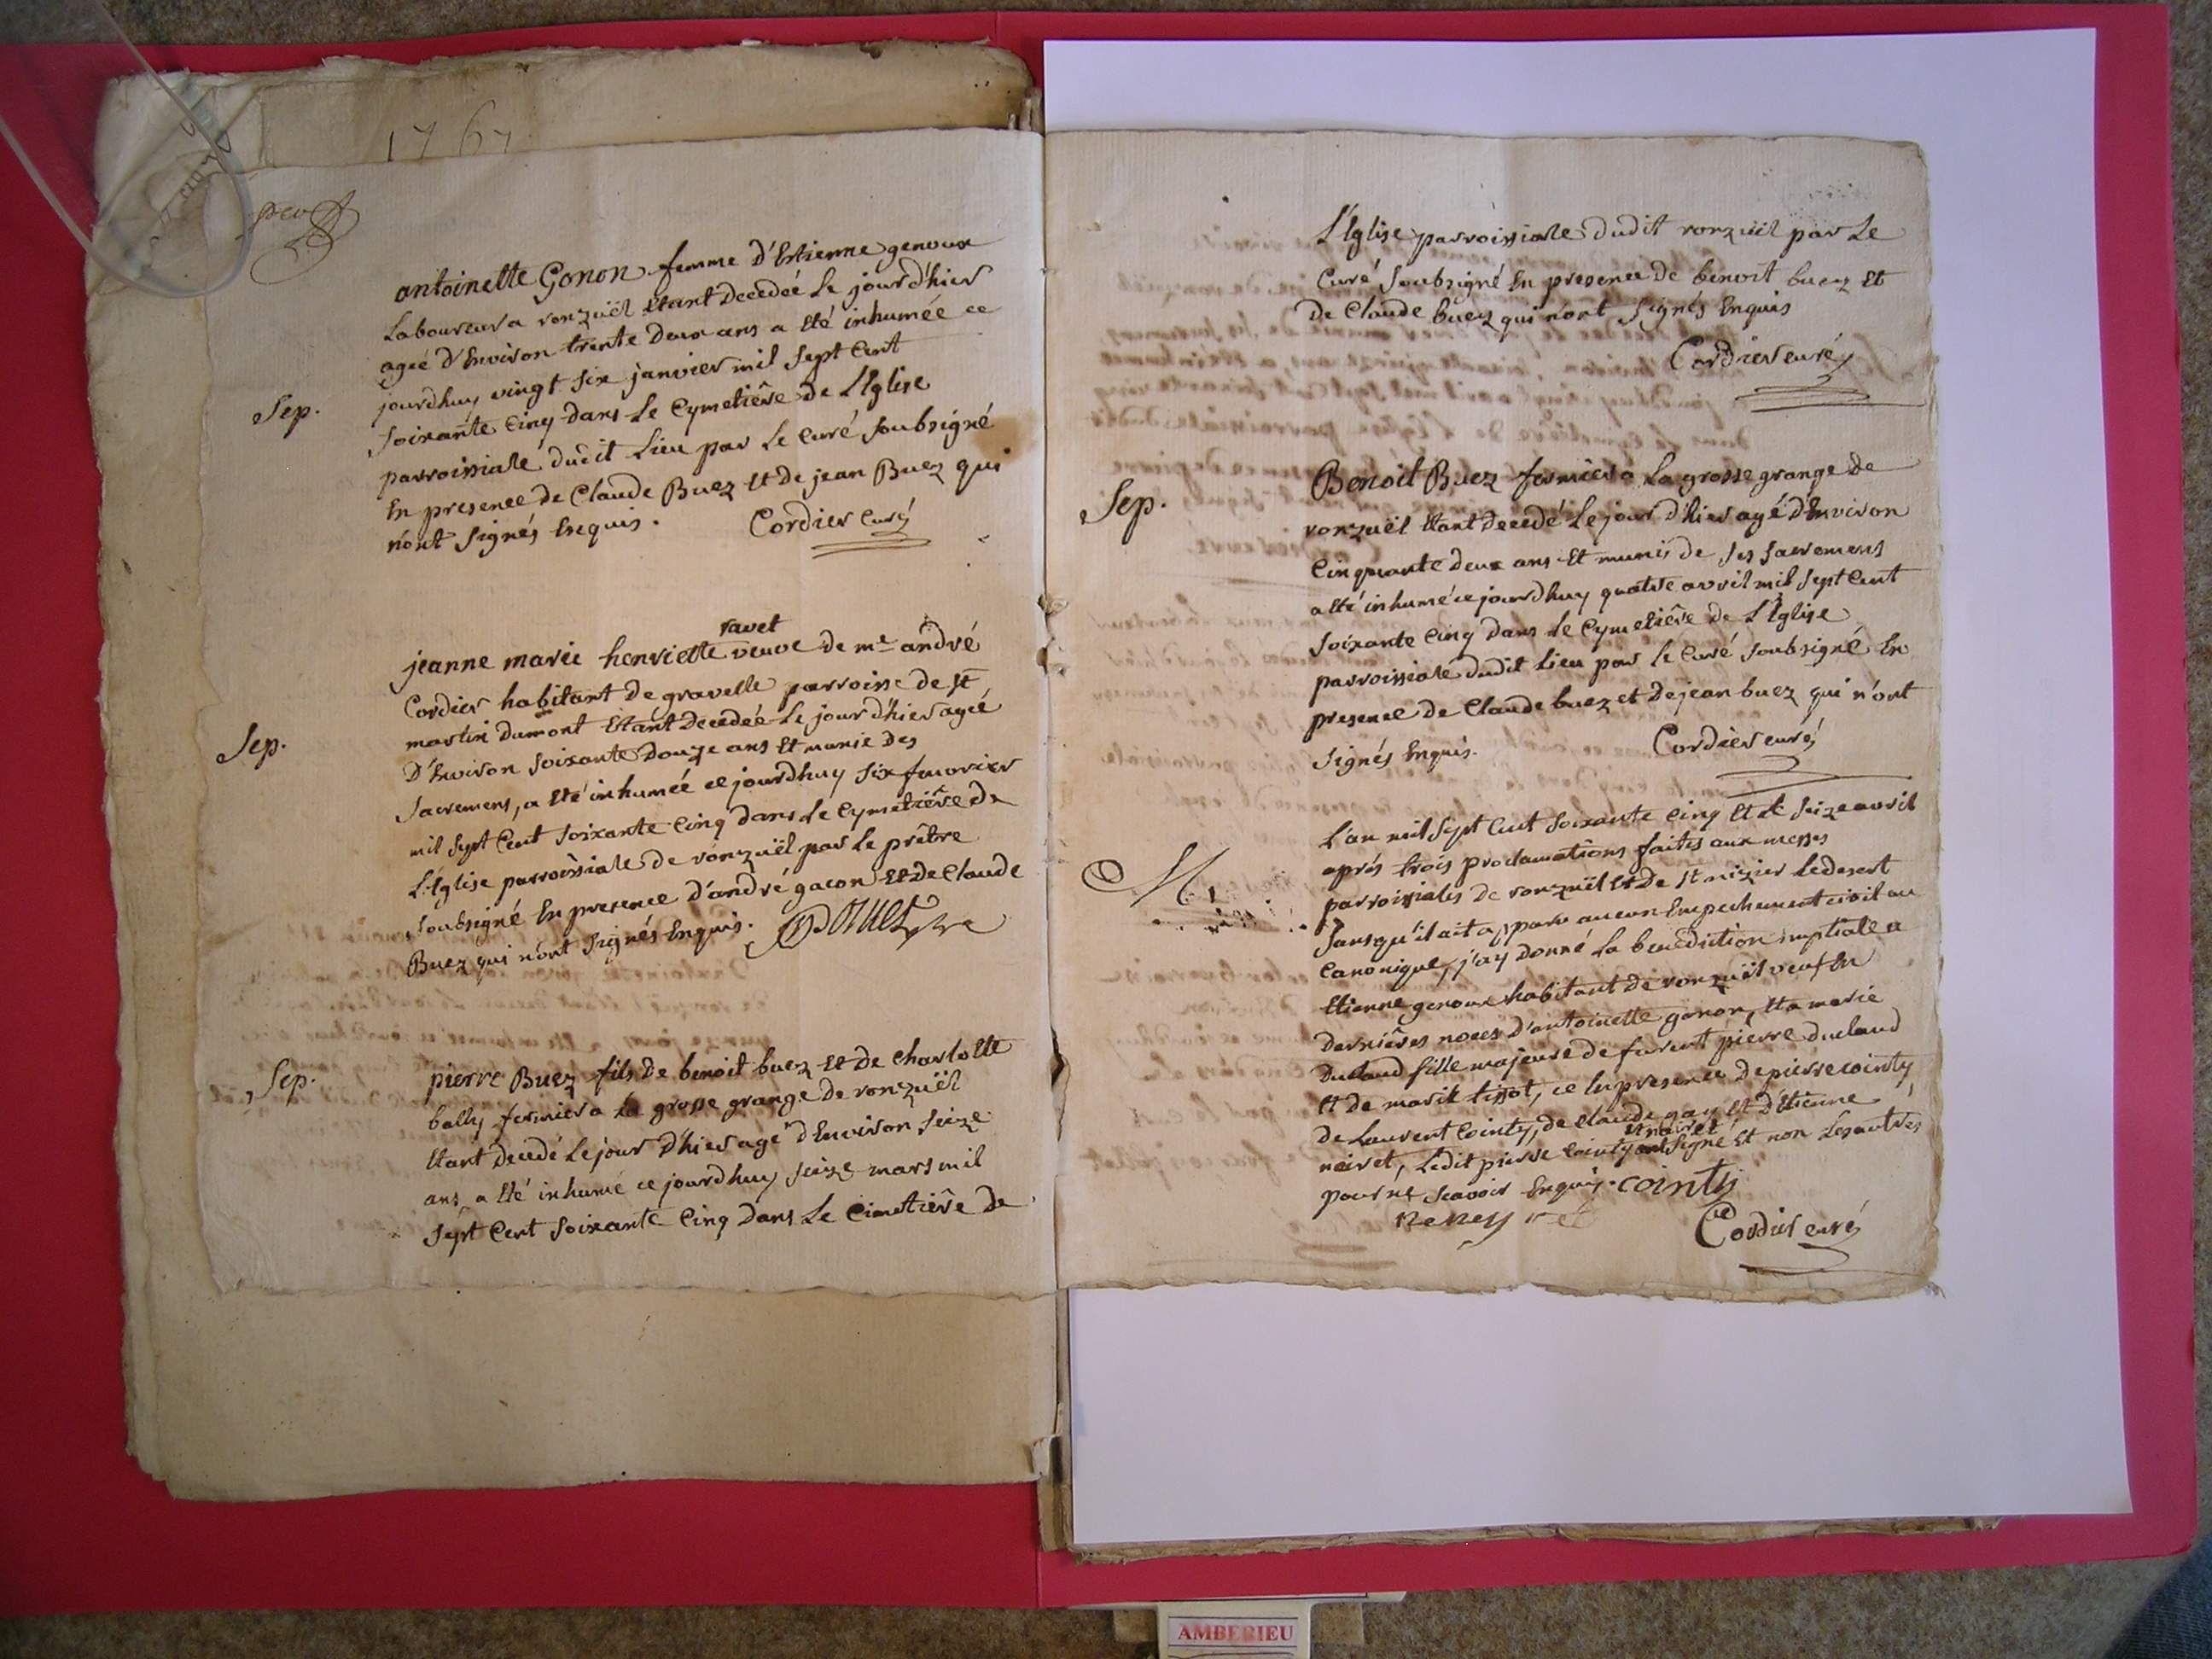 1767
antoinette Gonon femme d'Estienne genoux
Laboureur a ronzuël etant decedeé le jour d'hier
ageé d'Environ trente deux ans a eté inhumée ce
jourdhuy vingt six janvier mil sept cent
Sep.
soixante cinq dans le Cymetiêre de L'Eglise
parroissiale dudit Lieu par le curé soubsigné
En presence de Claude Buez et de jean Buez qui
n'ont signés Enquis.
Cordier curé
ravet
jeanne marie henriette veuve de me andré
Cordier habitant de gravelle parroisse de st
Sep.
martin dumont Etant decedeé le jour d'hier ageé
D'Environ soixante douze ans et munie des
sacremens, a eté inhumée ce jourdhuy six fevrier
mil sept cent soixante cinq dans le Cymetiêre de
L'Eglise parroissiale de ronzuël par le prêtre
soubsigné En presence d'andré gacon et de Claude
Buez qui n'ont signés Enquis.
Sep.
pierre Buez fils de benoit buez et de charlotte
bally fermier a la grosse grange de ronzuël
etant decedé le jour d'hier agé d'Environ seize
ans a eté inhumé ce jourdhuy seize mars mil
sept cent soixante cinq dans le cimetiêre de
L'Eglise parroissiale dudit ronzuël par le
curé soubsigné En presence de benoit buez et
de Claude buez qui n'ont signés Enquis
Cordier curé
Sep.
Benoit Buez fermier a la grosse grange de
ronzuël etant decedé le jour d'hier agé d'Environ
cinquante deux ans et munis de ses sacremens
a eté inhumé ce jourdhuy quatre avril mil sept cent
soixante cinq dans le Cymetiêre de L'Eglise
parroissiale dudit Lieu par le curé soubsigné En
presence de Claude buez et de jean buez qui n'ont
signés Enquis.
Cordier curé
L'an mil sept cent soixante cinq et le seize avril
M.
aprés trois proclamations faites aux messes
parroissiales de ronzuël et de st nizier le desert
sans qu'il ait apparu aucun Empechement civil ou
canonique, j'ay donné la benediction nuptiale a
Etienne genoux habitant de ronzuël veuf En
derniêres noces d'antoinette gonon, et a marie
duclaud fille majeure de furent pierre duclaud
et de marie tissot, ce En presence de pierre cointy
de Laurent Cointy, de claude gay et d'Etienne
et neiret
neiret, Ledit pierre Cointy ont signé et non les autres
pour ne scavoir Enquis. cointy
Cordier curé
AMBERIEU